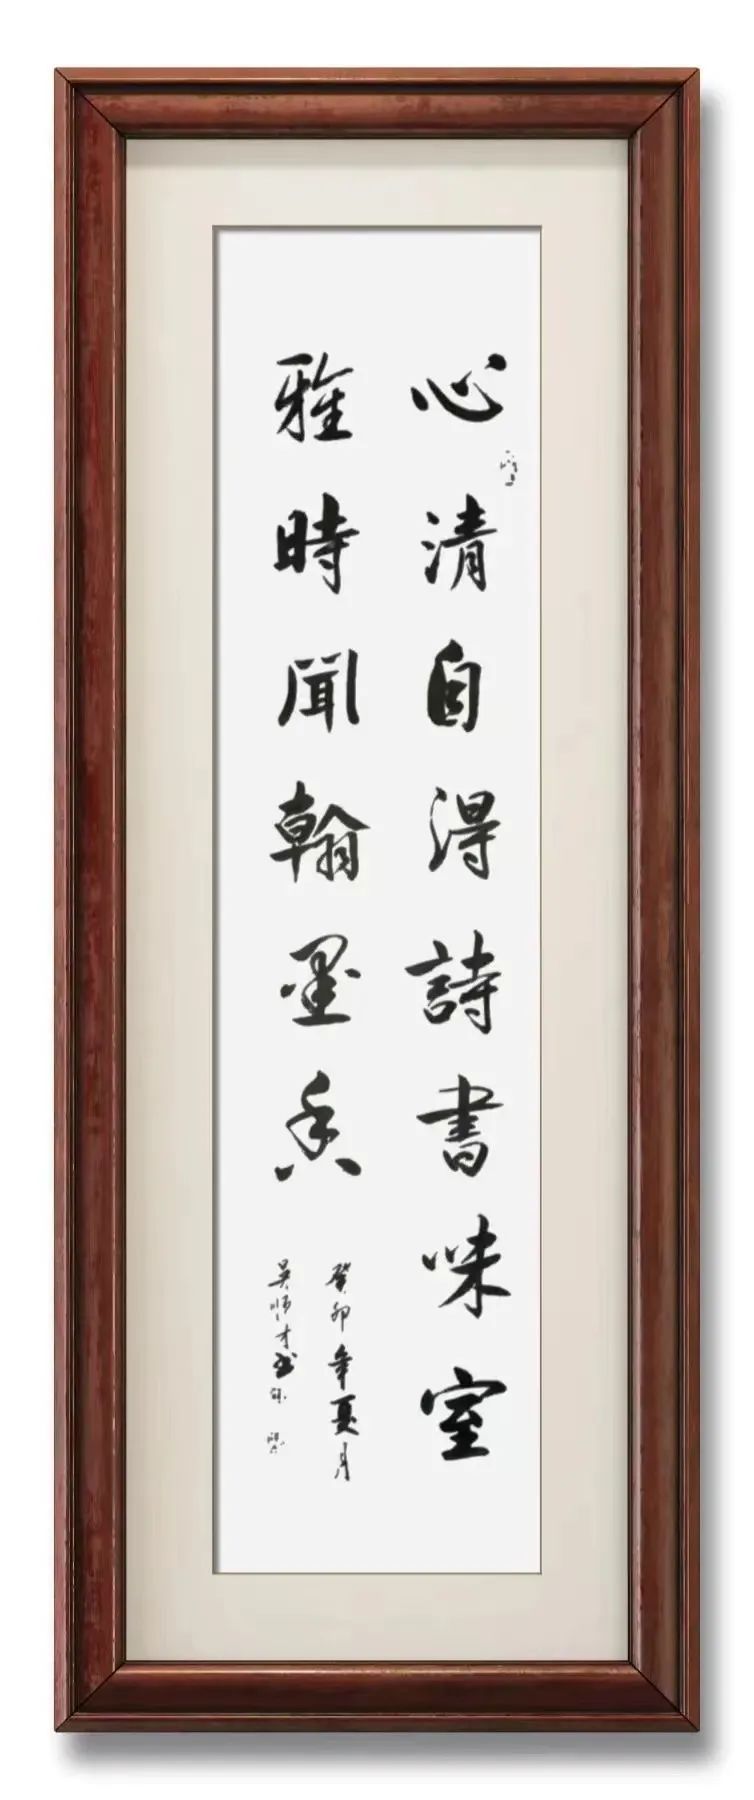 心清自得詩書味室
雅時聞翰墨香
癸卯年夏月
吴师才书